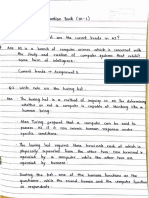 Question Bank (M-1)
What are the current trends in AI?
Ans AI is a branch of computer science which is concerned with
the study and creation of computer systems that exhibit
some form of intelligence.
Current trends → Assignment 1
Q.2 Write note on the turing test.
Ans The turing test is a method of inquiry in AI for determining
whether or not a computer is capable of thinking like a
human being.
Alan Turing proposed that a computer can be said to
possess AI if it can mimic human response under
specific conditions.
The turing test requires three terminals each of which is
physically separated from the other two. One terminal is
operated by computer, while the other two are
operated by humans.
During the test, one of the humans functions as the
questioner while the second human and the computer function
as respondents.